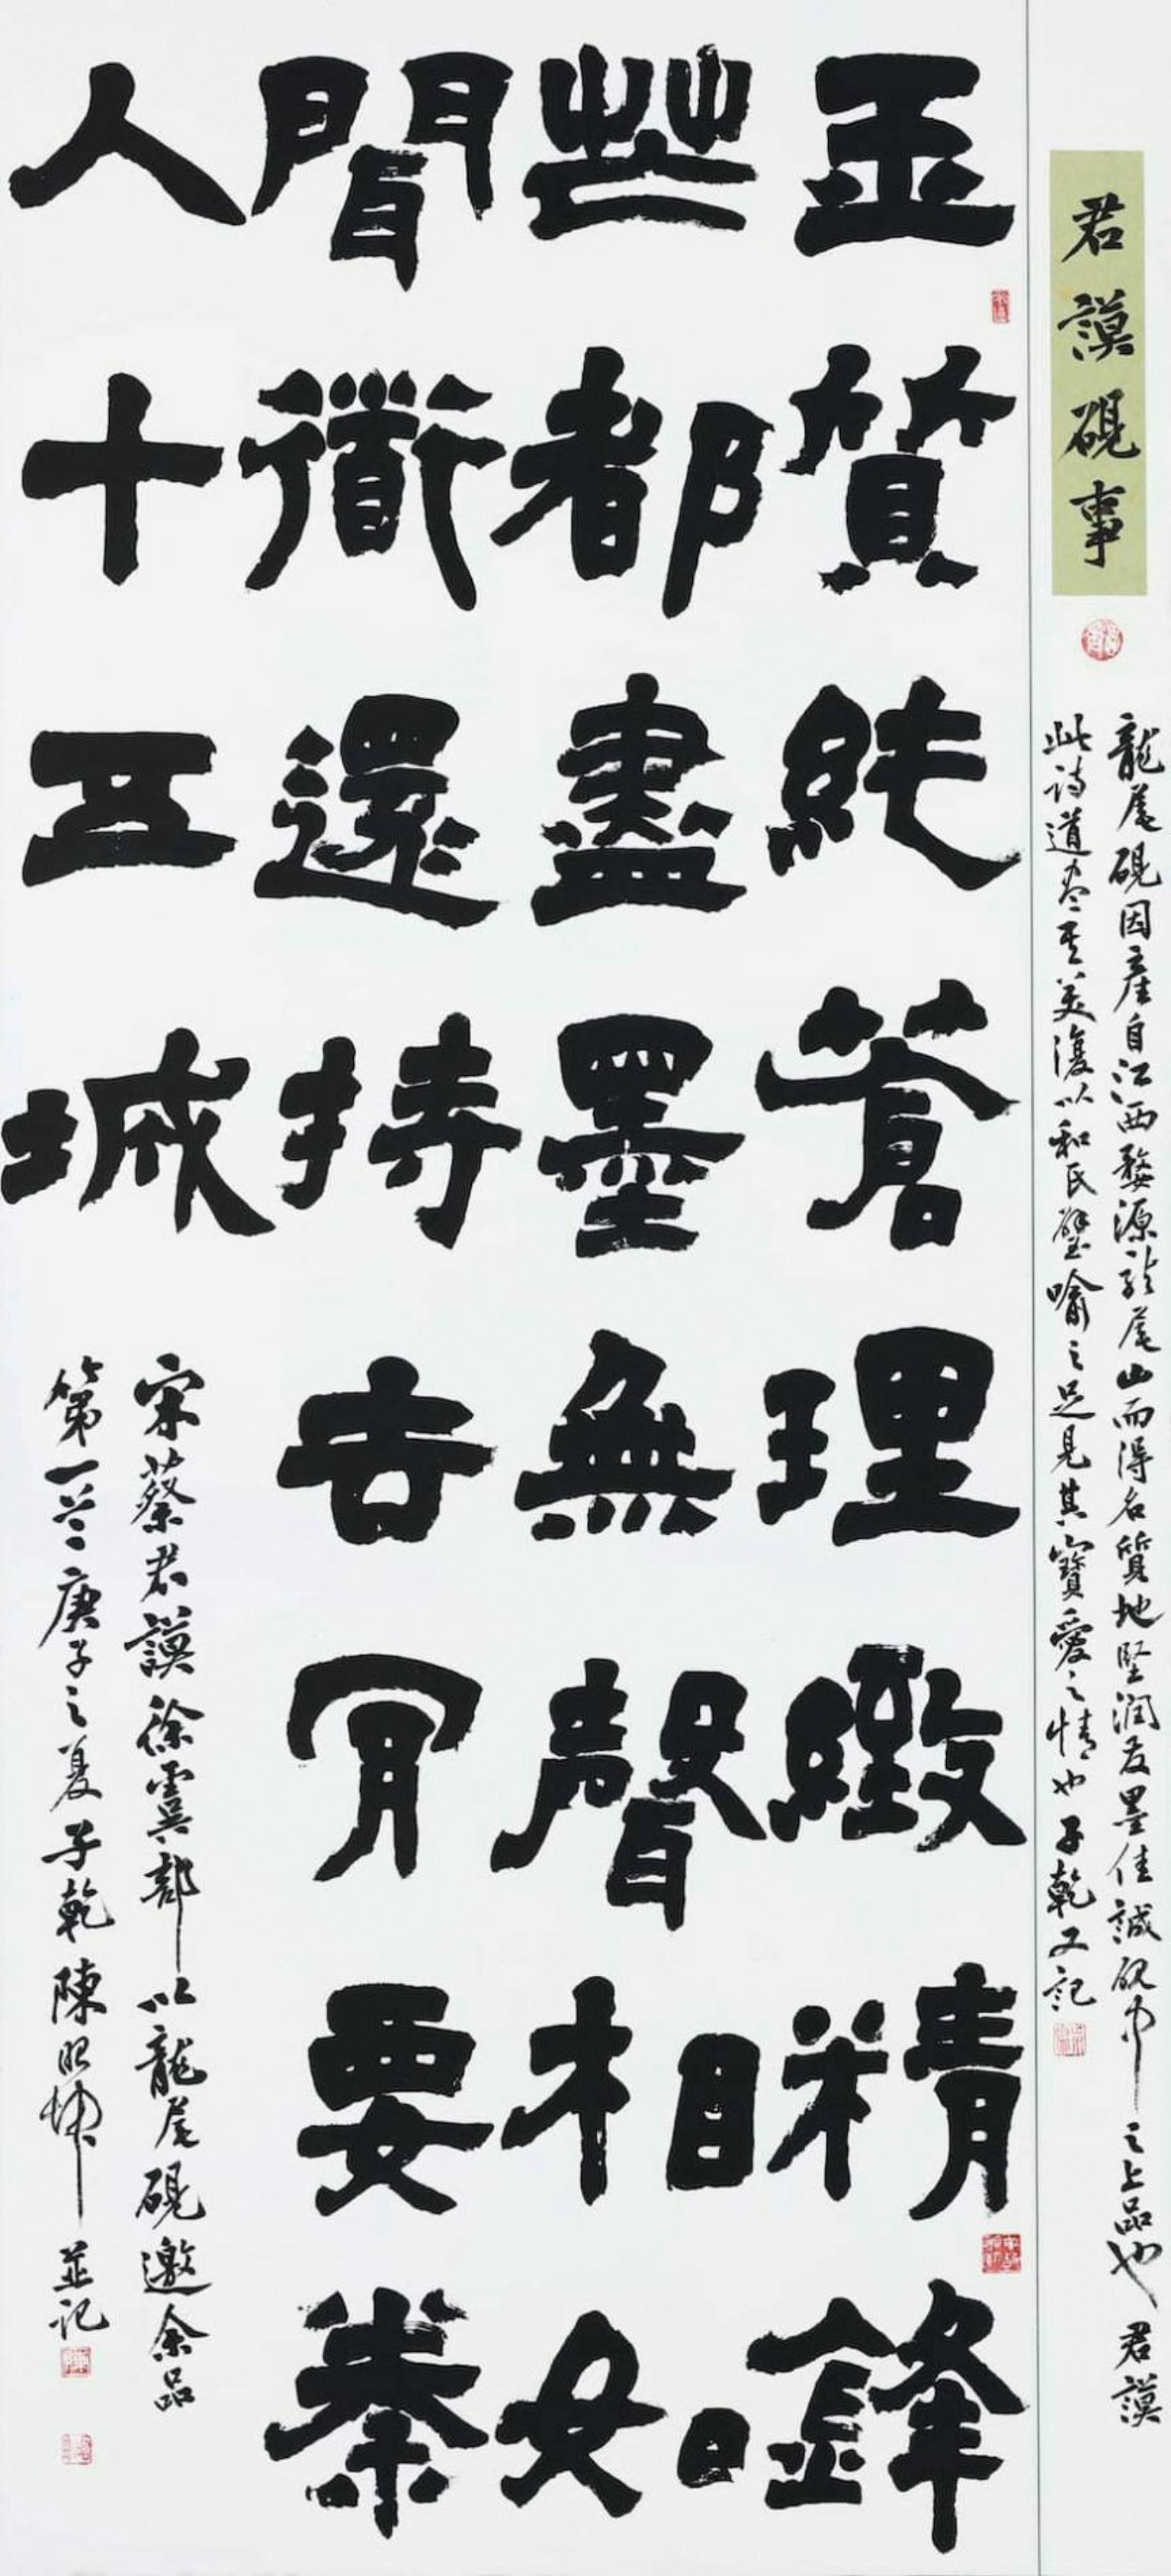 君謨硯事
龍尾硯因產自江西婺源龍尾山而得名質地堅潤发墨佳誠硯中之上品也君謨
此诗道尽其美復以和氏璧喻之足見其寶愛之情也子乾又記
玉質純蒼理緻精鋒
芒都盡墨無聲相如
聞道還持去肯要秦
人十五城
宋蔡君謨徐虞部以龍尾硯邀余品
第一首庚子之夏子乾陳昭坤並记